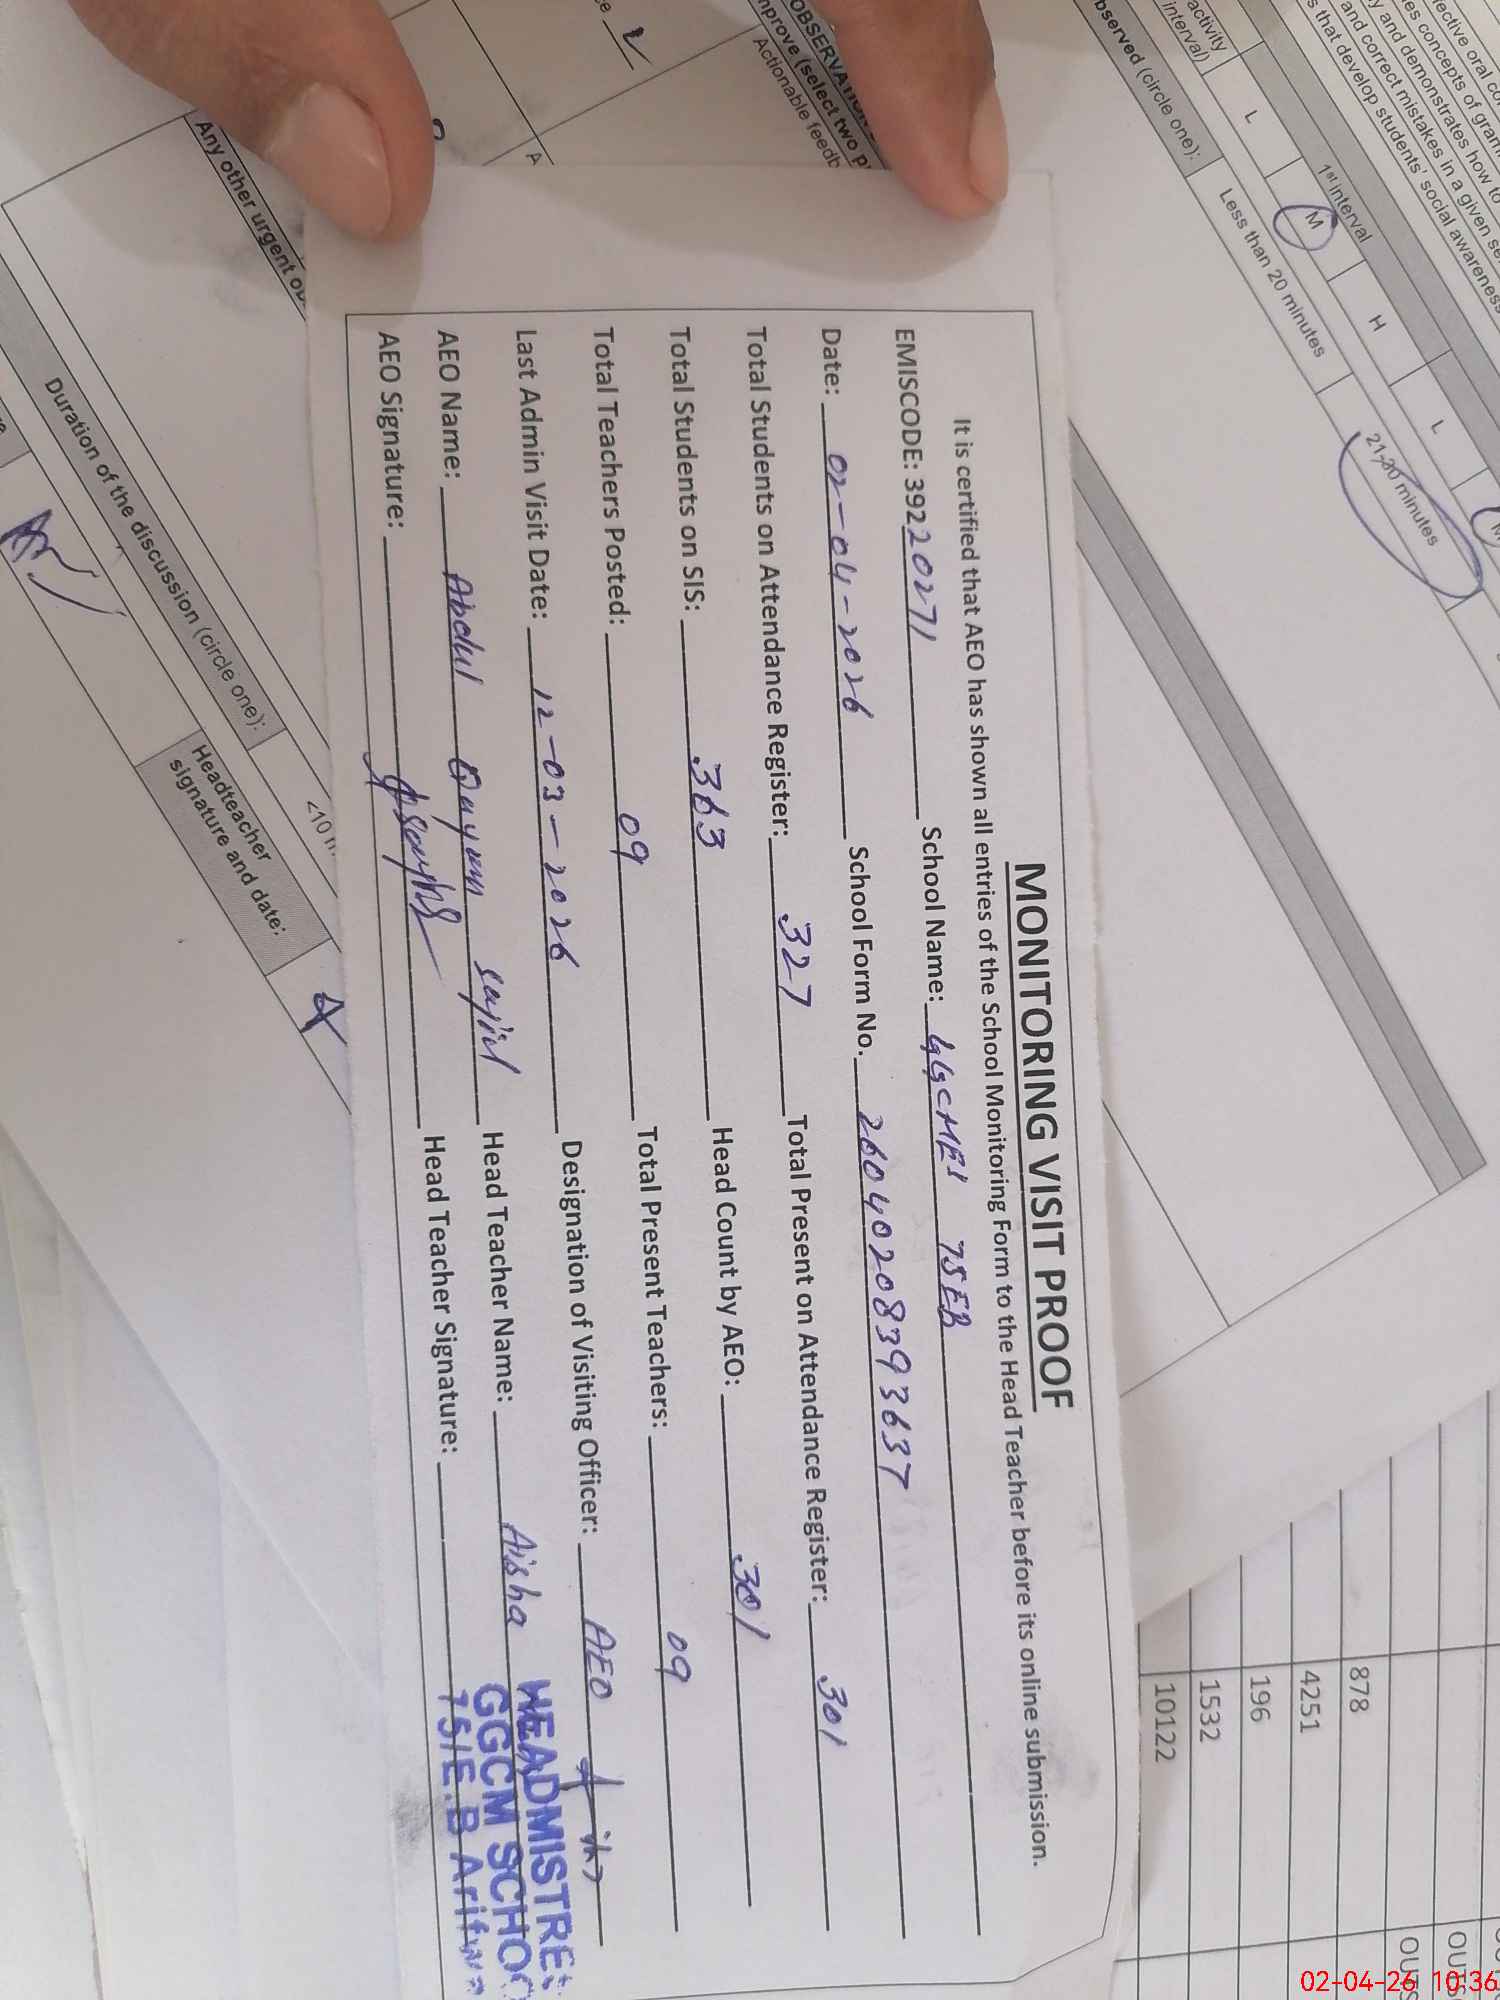 MONITORING VISIT PROOF
It is certified that AEO has shown all entries of the School Monitoring Form to the Head Teacher before its online submission.
EMISCODE: 39220271 School Name: GGCMES 75EB
Date: 02-04-2026 School Form No. 26040208393637
Total Students on Attendance Register: 327 Total Present on Attendance Register: 301
Total Students on SIS: 363 Head Count by AEO: 301
Total Teachers Posted: 09 Total Present Teachers: 09
Last Admin Visit Date: 12-03-2026 Designation of Visiting Officer: AEO
AEO Name: Abdul Qayum Sajid Head Teacher Name: Aisha
AEO Signature: Head Teacher Signature:
HEADMISTRES
GGCM SCHOO
75/E.B Arifwa
activity
interval)
1st interval
L M H L M
observed (circle one):
Less than 20 minutes
21-30 minutes
and correct mistakes in a given
s that develop students' social awareness
and demonstrates how to
es concepts of
ective oral
mprove (select two
Actionable feedb
Any other urgent
Duration of the discussion (circle one):
Headteacher
signature and date:
<10
878
4251
196
1532
10122
OUTS
OUTS
02-04-26 10:36